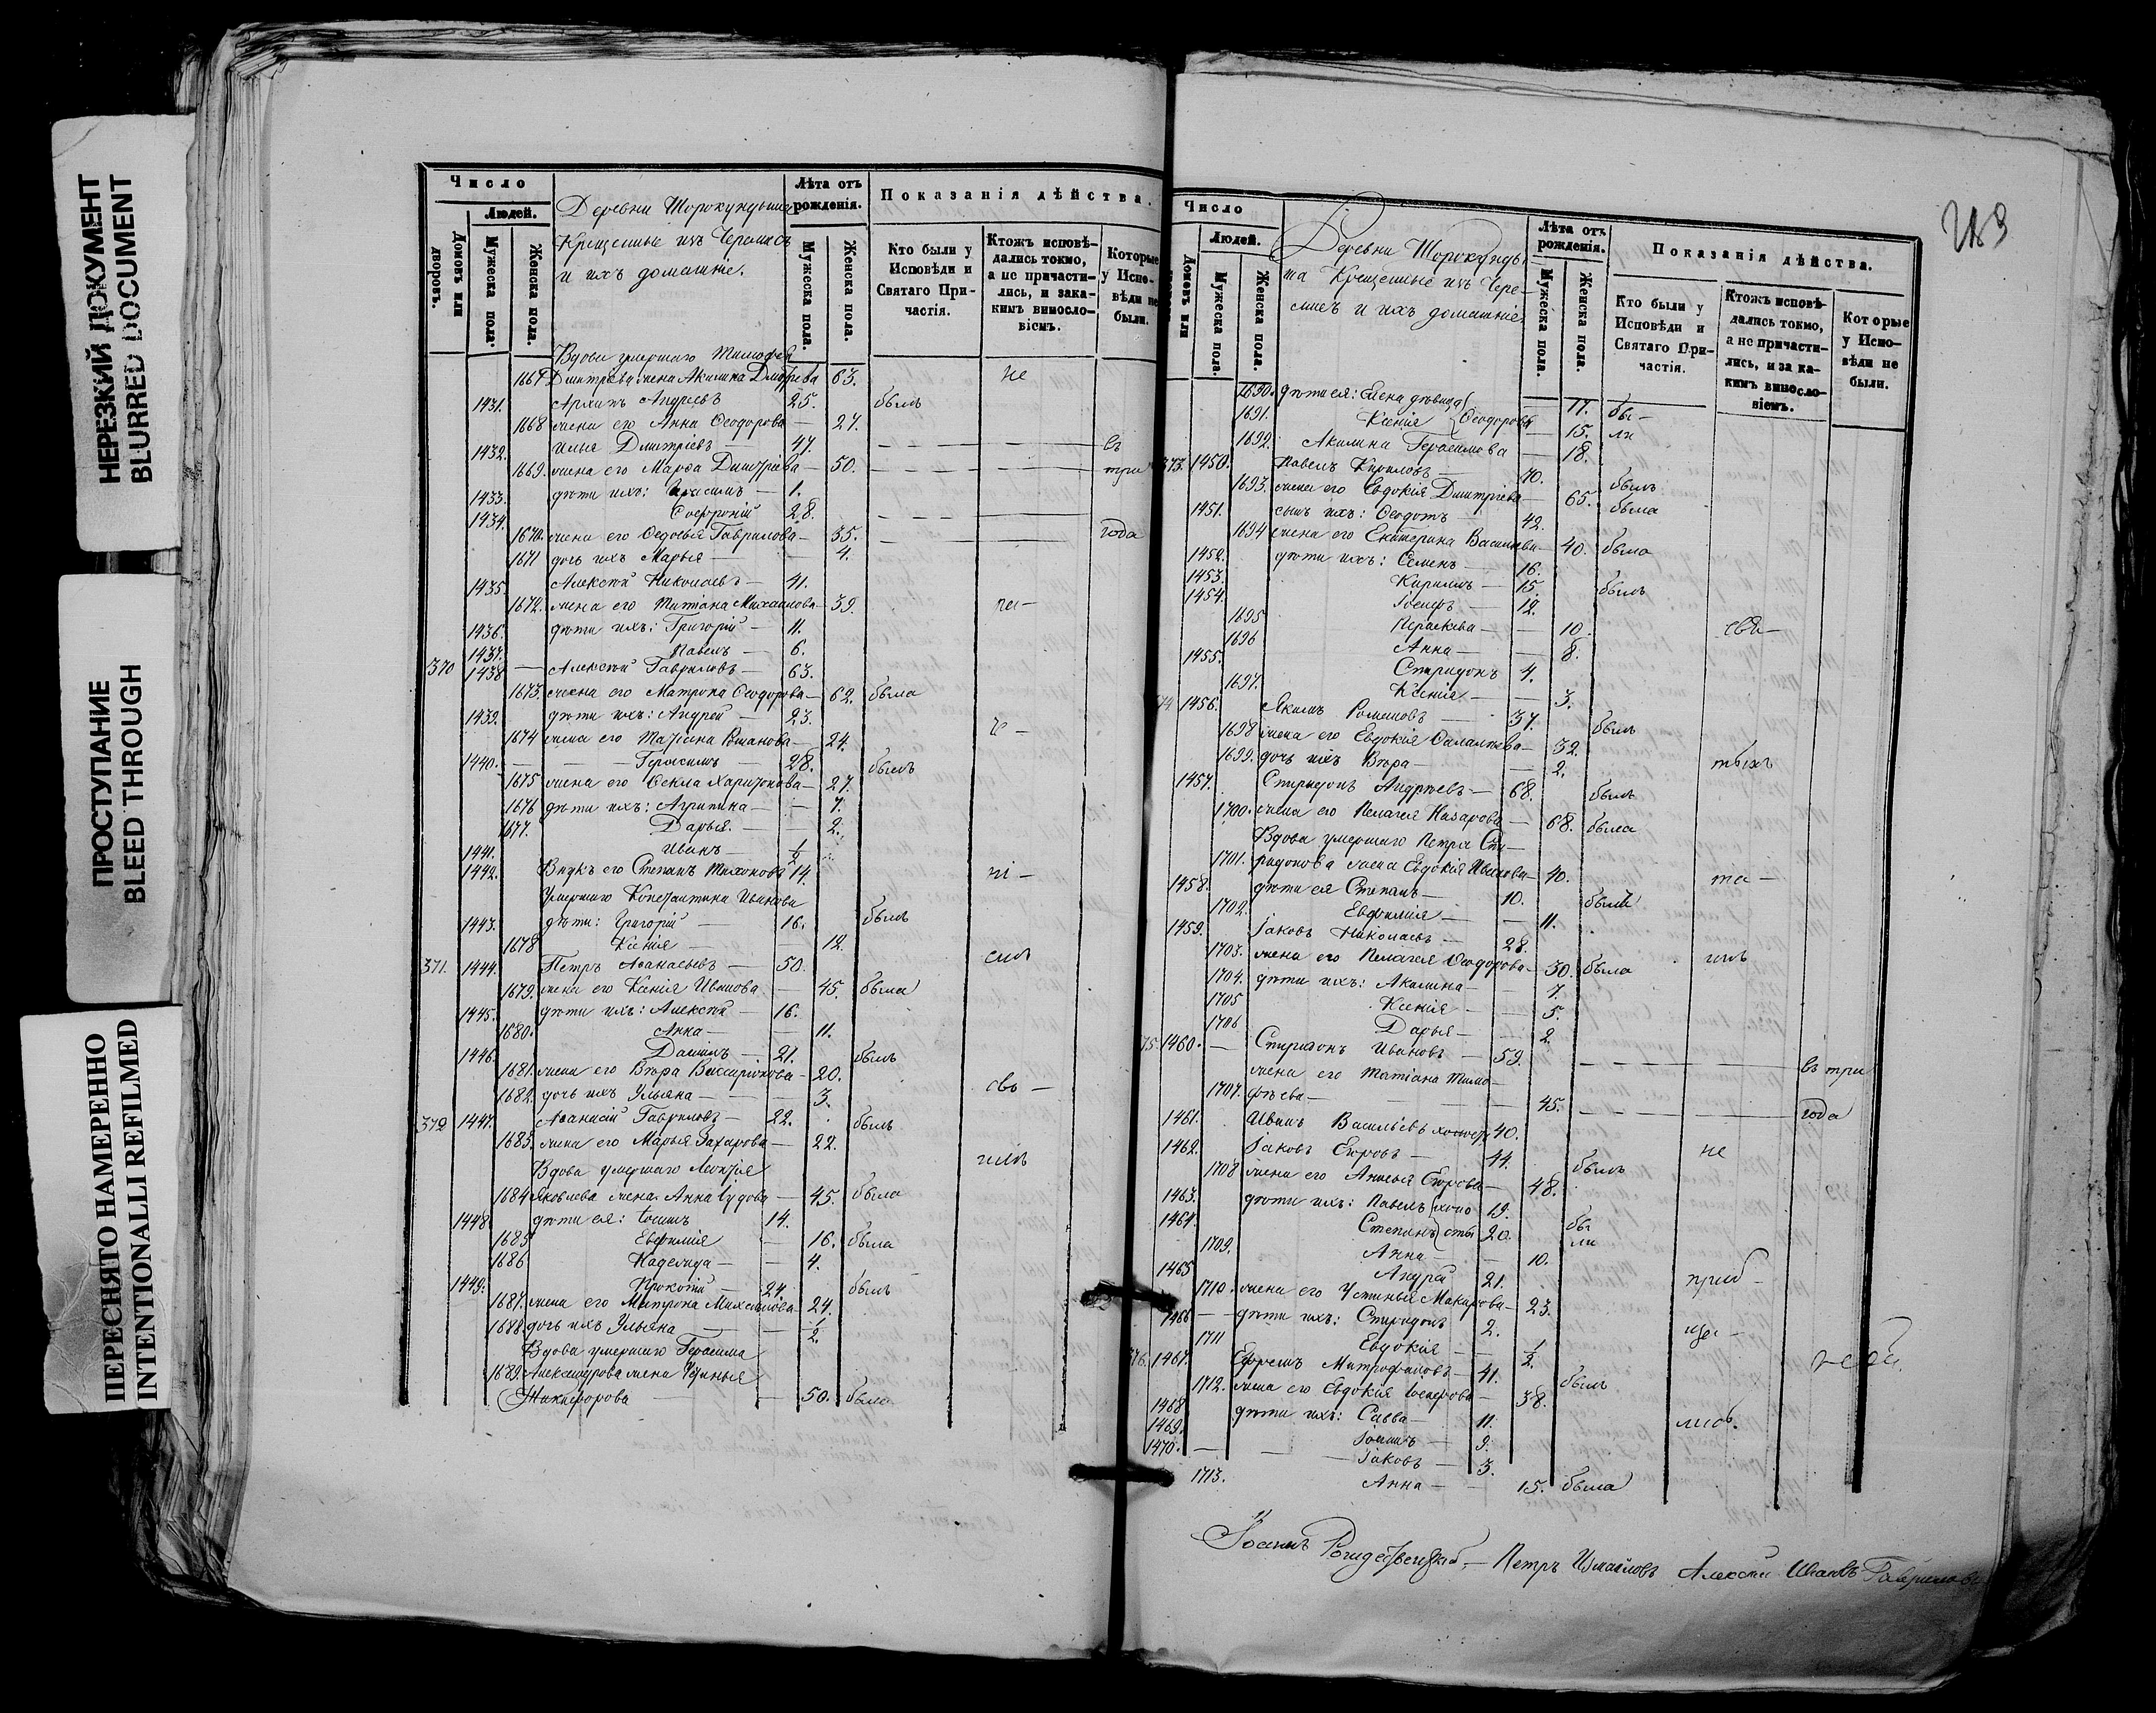 НЕРЕЗКИЙ ДОКУМЕНТ
BLURRED DOCUMENT
ПРОСТУПАНИЕ
BLEED THROUGH
ПЕРЕСНЯТО НАМЕРЕННО
INTENTIONALLI REFILMED
Число
Людей.
Домовъ или дворовъ.
Мужеска пола.
Женска пола.
Деревни
Крещеные изъ Черемисъ
и ихъ домашніе.
Лѣта отъ рожденія.
Мужеска пола.
Женска пола.
Показанія дѣйства.
Кто были у Исповѣди и Святаго Причастія.
Ктожъ исповѣдались токмо, а не причастились, и закакимъ винословіемъ.
Которые у Исповѣди не были.
Вдова умершаго Тимофея
Дмитріева жена Акилина 63. не
1431. Архипъ Андреевъ 25. былъ
1668 жена его Анна Ѳеодорова — 27.
1432. Илья Дмитріевъ — 47. въ
1669. жена его Марѳа Дмитріева — 50. три
1433. дѣти ихъ: — 1.
1434. Софроній 28.
1670. жена его Гаврилова — 35. года
1671 дочь ихъ Марья — 4.
1435. Алексѣй Николаевъ — 41.
1672. жена его Татіана Михаилова — 39.
1436. дѣти ихъ: Григорій — 11.
1437. Павелъ — 6.
370 1438 — Алексѣй Гавриловъ — 63.
1673. жена его Матрона Ѳеодорова — 62. была
1439. дѣти ихъ: Андрей — 23.
1674 жена его Татіана Романова — 24.
1440. — Герасимъ — 28. былъ
1675 жена его Ѳекла Харитонова — 27.
1676 дѣти ихъ: Агрипина — 7.
1677. Дарья. — 2.
1441. Иванъ — ½
1442. его Степанъ Тихоновъ 14.
Умершаго Константина Иванова
1443. дѣти: Григорій — 16. былъ
1678 Ксенія — 12.
371. 1444. Петръ Аѳанасьевъ — 50.
1679. жена его Ксенія Иванова — 45. была
1445. дѣти ихъ: Алексѣй — 16.
1680. Анна — 11.
1446. Даніилъ — 21. былъ
1681. жена его Вѣра Виссаріонова — 20.
1682. дочь ихъ Ульяна — 3. сво —
372 1447. Аѳанасій Гавриловъ — 22. былъ
1683. жена его Марья Захарова — 22.
Вдова умершаго Леонтія
1684 Яковлева жена Анна — 45. была
1448. дѣти ея: 14.
1685 Евфимія — 16. была
1686 Надежда — 4.
1449. Прокопій — 24. былъ
1687. жена его Матрона Михайлова 24.
1688. дочь ихъ Ульяна — ½
Вдова умершаго Герасима
1689. Александрова жена Устинья
Никифорова — 50. была
Число
Людей.
Домовъ или
Мужеска пола.
Женска пола.
Деревни
Крещеные изъ Чере-
мисъ и ихъ домашніе.
Лѣта отъ рожденія.
Мужеска пола.
Женска пола.
Показанія дѣйства.
Кто были у Исповѣди и Святаго Причастія.
Ктожъ исповѣдались токмо, а не причастились, и за какимъ винословіемъ.
Которые у Исповѣди не были.
1690. дѣти ея: Елена дѣвица — 17. бы-
1691. Ксенія Ѳеодоровы — 15. ли
1692. Акилина Герасимова — 18.
373. 1450. Павелъ Кириловъ — 70. былъ
1693. жена его Евдокія Дмитріева — 65. была
1451. сынъ ихъ: Ѳеодотъ — 42.
1694 жена его Екатерина Васильева — 40. была
1452. дѣти ихъ: Семенъ — 16.
1453. Кирилъ — 15. былъ
1454. Іосифъ — 12.
1695 Параскева — 10.
1696 Анна — 8.
1455. Спиридонъ 4.
1697. Ксенія — 3.
1456. Якимъ Романовъ — 37. былъ
1698 жена его Евдокія — 32.
1699. дочь ихъ Вѣра — 2.
1457. Спиридонъ Андреевъ — 68. былъ
1700. жена его Пелагея Назарова — 68. была
Вдова умершаго Петра Спи-
1701. ридонова жена Евдокія Иванова — 40.
1458. дѣти ея Степанъ — 10.
1702. Евфимія — 11.
1459. Іаковъ Николаевъ — 28.
1703. жена его Пелагея Ѳеодорова — 30. была
1704. дѣти ихъ: Акилина — 7.
1705 Ксенія — 5.
1706 Дарья — 2
1460. — Спиридонъ Ивановъ — 59. въ три
жена его Татіана Тимо-
1707. фѣева — 45. года
1461. Иванъ Васильевъ 40. не
1462. Іаковъ Егоровъ — 44. былъ
1708 жена его Егорова — 48.
1463. дѣти ихъ: Павелъ холо 19. бы
1464. Степанъ сты 20. ли
1709. Анна — 10.
1465 Андрей 21.
1710. жена его Устинья Макарова — 23.
1466 — дѣти ихъ: Спиридонъ 2.
1711 Евдокія — ½
1467. Ефремъ Митрофановъ — 41. былъ
1712. жена его Евдокія — 38.
1468 дѣти ихъ: Савва — 11.
1469. — 9.
1470. — Іаковъ — 3.
1713. Анна — 15. была
Петръ Измайловъ Алексѣй Ивановъ Гавриловъ